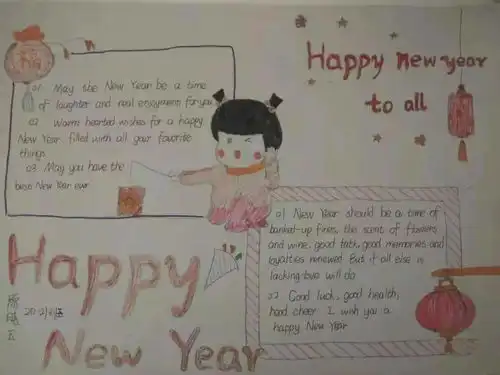 Happy new year
to all
01 May the New Year be a time
of laughter and real enjoyment for you.
02 Warm hearted wishes for a happy
New Year filled with all your favorite
things
03 May you have the
New Year ever
01 New Year should be a time of
banked-up fires, the scent of flowers
and wine, good talk, good memories and
loyalties renewed. But if all else is
lacking love will do.
02 Good luck, good health,
hood cheer. I wish you a
happy New Year
Happy
New Year